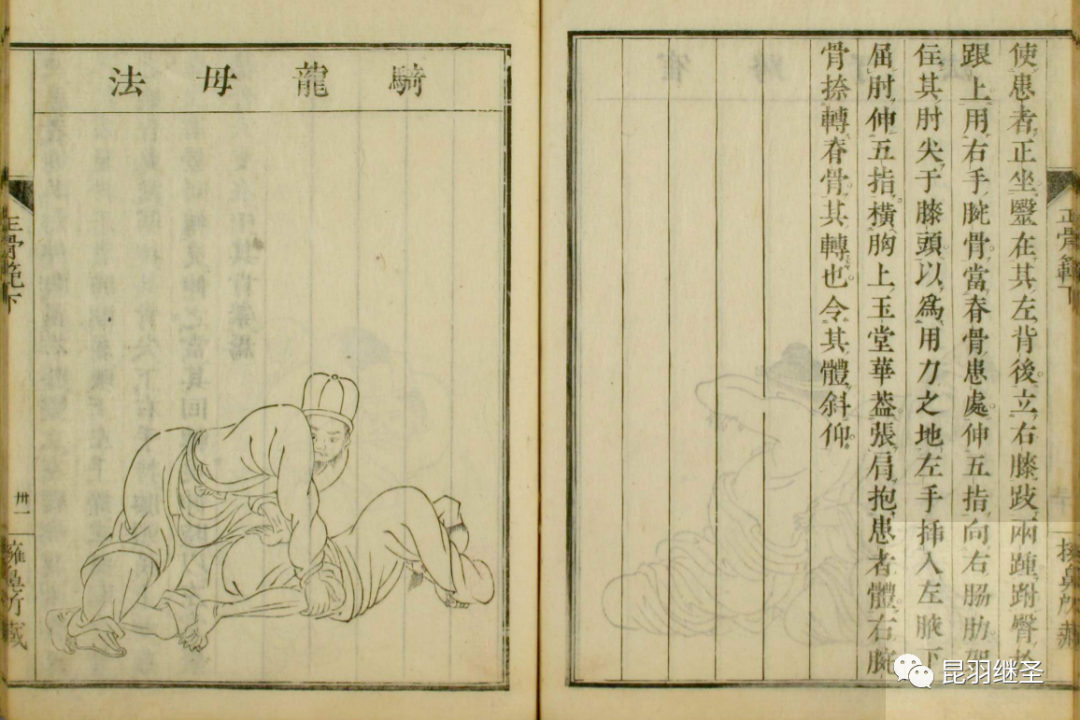 使患者正坐毉在其左背後立右膝跂兩踵跗臀於
跟上用右手腕骨當脊骨患處伸五指向右脇肋架
住其肘尖于膝頭以爲用力之地左手挿入左腋下
屈肘伸五指橫胸上玉堂華葢張肩抱患者體右腕
骨捺轉脊骨其轉也令其體斜仰
正骨範下
騎龍母法
正骨範下
卅一
擁鼻所藏
昆羽继圣